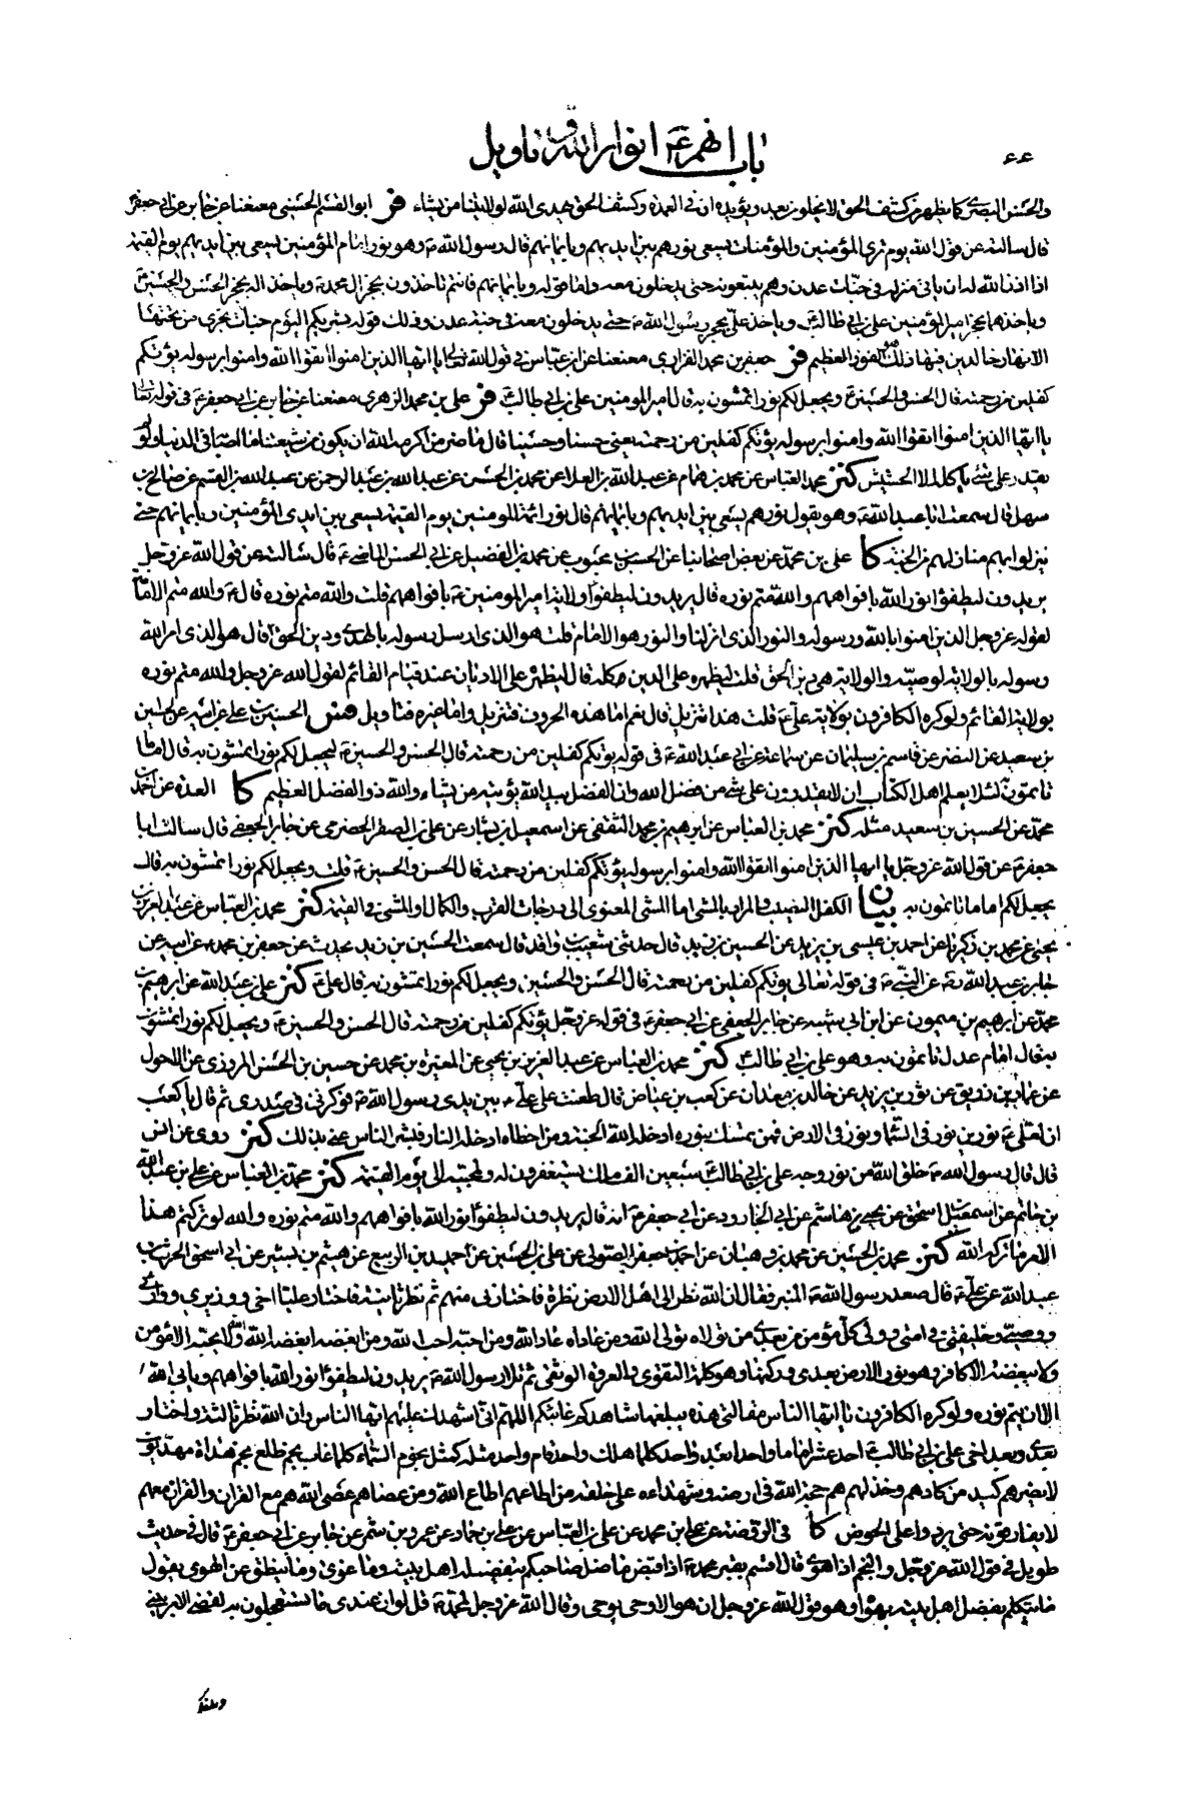 باب انهم ع انوار الله و تاويل
والحسن البصرى كما يظهر من كشف الحق لا يخلو من بعد و يؤيده ان فى العمدة و كشف الحق يهدى الله لولايتنا من يشاء فر ابو القسم الحسينى معنعنا عن جابر عن ابى جعفر ع
قال سالته عن قول الله يوم ترى المؤمنين والمؤمنات يسعى نورهم بين ايديهم و بايمانهم قال رسول الله ص وهو نور امام المؤمنين يسعى بين ايديهم يوم القيمة
اذا اذن الله له ان ياتى منزله فى جنات عدن وهم يتبعونه حتى يدخلون معه واما قوله و بايمانهم فانتم تاخذون بحجز ال محمد ص و ياخذ اله بحجز الحسن والحسين ع
و ياخذهما بحجز امير المؤمنين على بن ابى طالب ع و ياخذ على بحجز رسول الله ص حتى يدخلون معه فى جنة عدن و ذلك قوله بشريكم اليوم جنات تجرى من تحتها
الانهار خالدين فيها ذلك هو الفوز العظيم فر جعفر بن محمد الفزارى معنعنا عن ابن عباس فى قول الله تعالى يا ايها الذين امنوا اتقوا الله وامنوا برسوله يؤتكم
كفلين من رحمته قال الحسن والحسين ع و يجعل لكم نورا تمشون به قال امير المومنين على بن ابى طالب ع فر على بن محمد الزهرى معنعنا عن جابر عن ابى جعفر ع فى قوله تعالى
يا ايها الذين امنوا اتقوا الله وامنوا برسوله يؤتكم كفلين من رحمته يعنى حسنا و حسينا قال ما ضر من اكرمه الله ان يكون من شيعتنا ما اصابه فى الدنيا ولو لم
يقدر على شئ ياكله الا الحشيش كنز محمد العباس عن محمد بن همام عن عبد الله بن العلا عن محمد بن الحسن عن عبد الله بن عبد الرحمن عن عبد الله بن القسم عن صالح بن
سهل قال سمعت ابا عبد الله ع وهو يقول نورهم يسعى بين ايديهم و بايمانهم قال نور ائمة المومنين يوم القيمة يسعى بين ايدى المؤمنين و بايمانهم حتى
ينزلوا بهم منازلهم من الجنة كا على بن محمد عن بعض اصحابنا عن الحسن بن محبوب عن محمد بن الفضيل عن ابى الحسن الماضى ع قال سالته عن قول الله عز و جل
يريدون ليطفؤا نور الله بافواههم والله متم نوره قال يريدون ليطفؤا ولاية امير المومنين ع بافواههم قلت والله متم نوره قال ع والله متم الامامة
لقوله عز و جل الذين امنوا بالله و رسوله والنور الذى انزلنا والنور هو الامام قلت هو الذى ارسل رسوله بالهدى و دين الحق قال هو الذى امر الله
رسوله بالولاية لوصيه والولاية هى دين الحق قلت ليظهره على الدين كله قال ليظهره على الاديان عند قيام القائم لقول الله عز و جل والله متم نوره
بولاية القائم ولو كره الكافرون بولاية على ع قلت هذا تنزيل قال نعم اما هذه الحروف فتنزيل واما غيره فتاويل فس الحسين بن على عن ابيه عن الحسين
بن سعيد عن النضر عن قاسم بن سليمان عن سماعة عن ابى عبد الله ع فى قوله يؤتكم كفلين من رحمته قال الحسن والحسين ع ليجعل لكم نورا تمشون به قال اماما
تاتمون لئلا يعلم اهل الكتاب ان لا يقدرون على شئ من فضل الله وان الفضل بيد الله يؤتيه من يشاء والله ذو الفضل العظيم كا العدة عن احمد بن
محمد عن الحسين بن سعيد مثله كنز محمد بن العباس عن ابرهيم بن محمد الثقفى عن اسمعيل بن بشار عن على بن الصقر الحضرمى عن جابر الجعفى قال سالت ابا
جعفر ع عن قول الله عز و جل يا ايها الذين امنوا اتقوا الله وامنوا برسوله يؤتكم كفلين من رحمته قال الحسن والحسين ع قلت و يجعل لكم نورا تمشون به قال
يجعل لكم اماما تاتمون به بيان الكفل النصيب والمراد بالمشى اما المشى المعنوى الى درجات القرب والكمال او المشى فى القيمة كنز محمد بن العباس عن عبد العزيز بن
يحيى عن محمد بن زكريا عن احمد بن عيسى بن يزيد عن الحسين بن زيد قال حدثنى شعيب واقد قال سمعت الحسين بن زيد يحدث عن جعفر بن محمد ع عن ابيه عن
جابر بن عبد الله ره عن النبى ص فى قوله تعالى يؤتكم كفلين من رحمته قال الحسن والحسين و يجعل لكم نورا تمشون به قال على ع كنز على بن عبد الله عن ابرهيم بن
محمد عن ابرهيم بن ميمون عن ابن ابى شيبة عن جابر الجعفى عن ابى جعفر ع فى قوله عز و جل يؤتكم كفلين من رحمته قال الحسن والحسين ع و يجعل لكم نورا تمشون
به قال امام عدل تاتمون به وهو على بن ابى طالب ع كنز محمد بن العباس عن عبد العزيز بن يحيى عن المغيرة بن محمد عن حسين بن الحسن المروزى عن الاحول
عن عمار بن زريق عن ثور بن يزيد عن خالد بن معدان عن كعب بن عياض قال طعنت على على ع بين يدى رسول الله ص فوكزنى فى صدرى ثم قال يا كعب
ان لعلى ع نورين نور فى السماء و نور فى الارض فمن تمسك بنوره ادخله الله الجنة و من اخطاه ادخله النار فبشر الناس عنى بذلك كنز روى عن انس
قال قال رسول الله ص خلق الله من نور وجه على بن ابى طالب ع سبعين الف ملك يستغفرون له و لمحبيه الى يوم القيمة كنز محمد بن العباس عن على بن عبد الله
بن حاتم عن اسمعيل اسحق عن يحيى بن هاشم عن ابى الجارود عن ابى جعفر ع انه قال يريدون ليطفؤا نور الله بافواههم والله متم نوره والله لو تركتم هذا
الامر ما تركه الله كنز محمد بن الحسين عن محمد بن وهبان عن احمد بن جعفر الصولى عن على بن الحسين عن احميد بن الربيع عن هيثم بن بشير عن ابى اسحق الحرث بن
عبد الله عن على ع قال صعد رسول الله ص المنبر فقال ان الله نظر الى اهل الارض نظرة فاختارنى منهم ثم نظر ثانية فاختار عليا اخى و وزيرى و وارثى
و وصيى و خليفتى فى امتى و ولى كل مؤمن من بعدى من تولاه تولى الله و من عاداه عاد الله و من احبه احبه الله و من ابغضه ابغضه الله والله لا يحبه الا مؤمن
ولا يبغضه الا كافر وهو نور الارض بعدى و ركنها وهو كلمة التقوى والعروة الوثقى ثم تلا رسول الله ص يريدون ليطفؤا نور الله بافواههم و يابى الله
الا ان يتم نوره ولو كره الكافرون يا ايها الناس مقالتى هذه يبلغها شاهدكم غائبكم اللهم انى اشهدك عليهم ايها الناس وان الله نظر ثالثة و اختار
بعدى و بعد اخى على بن ابى طالب ع احد عشر اماما واحدا بعد واحد كلما هلك واحد قام واحد مثله كمثل نجوم السماء كلما غاب نجم طلع نجم هداة مهديون
لا يضرهم كيد من كادهم و خذلهم هم حجة الله فى ارضه و شهداءه على خلقه من اطاعهم اطاع الله و من عصاهم عصى الله هم مع القران والقران معهم
لا يفارقونه حتى يردوا على الحوض كا فى الروضة عن على بن محمد عن على بن العباس عن على بن حماد عن عمرو بن شمر عن جابر عن ابى جعفر ع قال فى حديث
طويل فى قول الله عز و جل والنجم اذا هوى قال اقسم بقبر محمد ص اذا قبض ما ضل صاحبكم بتفضيله اهل بيته وما غوى وما ينطق عن الهوى يقول
ما يتكلم بفضل اهل بيته بهواه وهو قول الله عز و جل ان هو الا وحى يوحى وقال الله عز و جل لمحمد ص قل لو ان عندى ما تستعجلون به لقضى الامر بينى